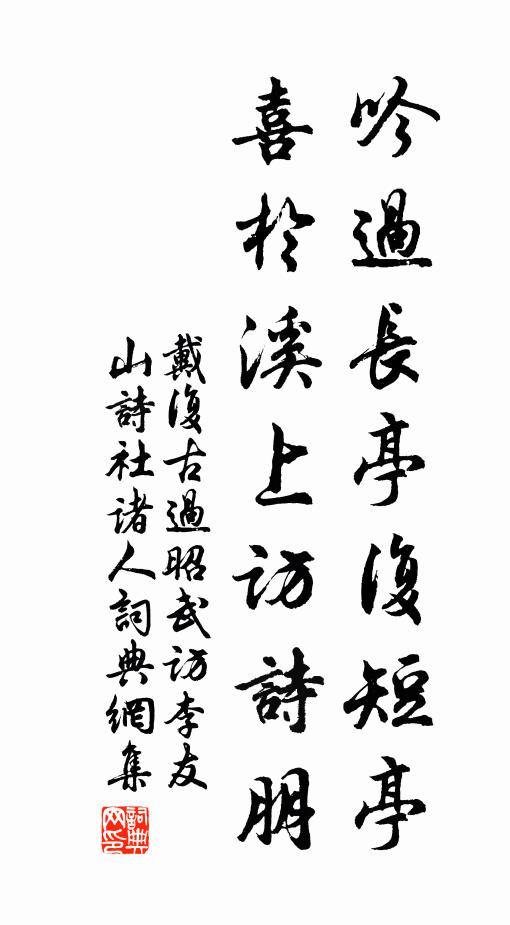 吟過長亭復短亭
喜於溪上訪詩朋
戴復古過昭武訪李友
山詩社諸人詞典網集
詞典
网印